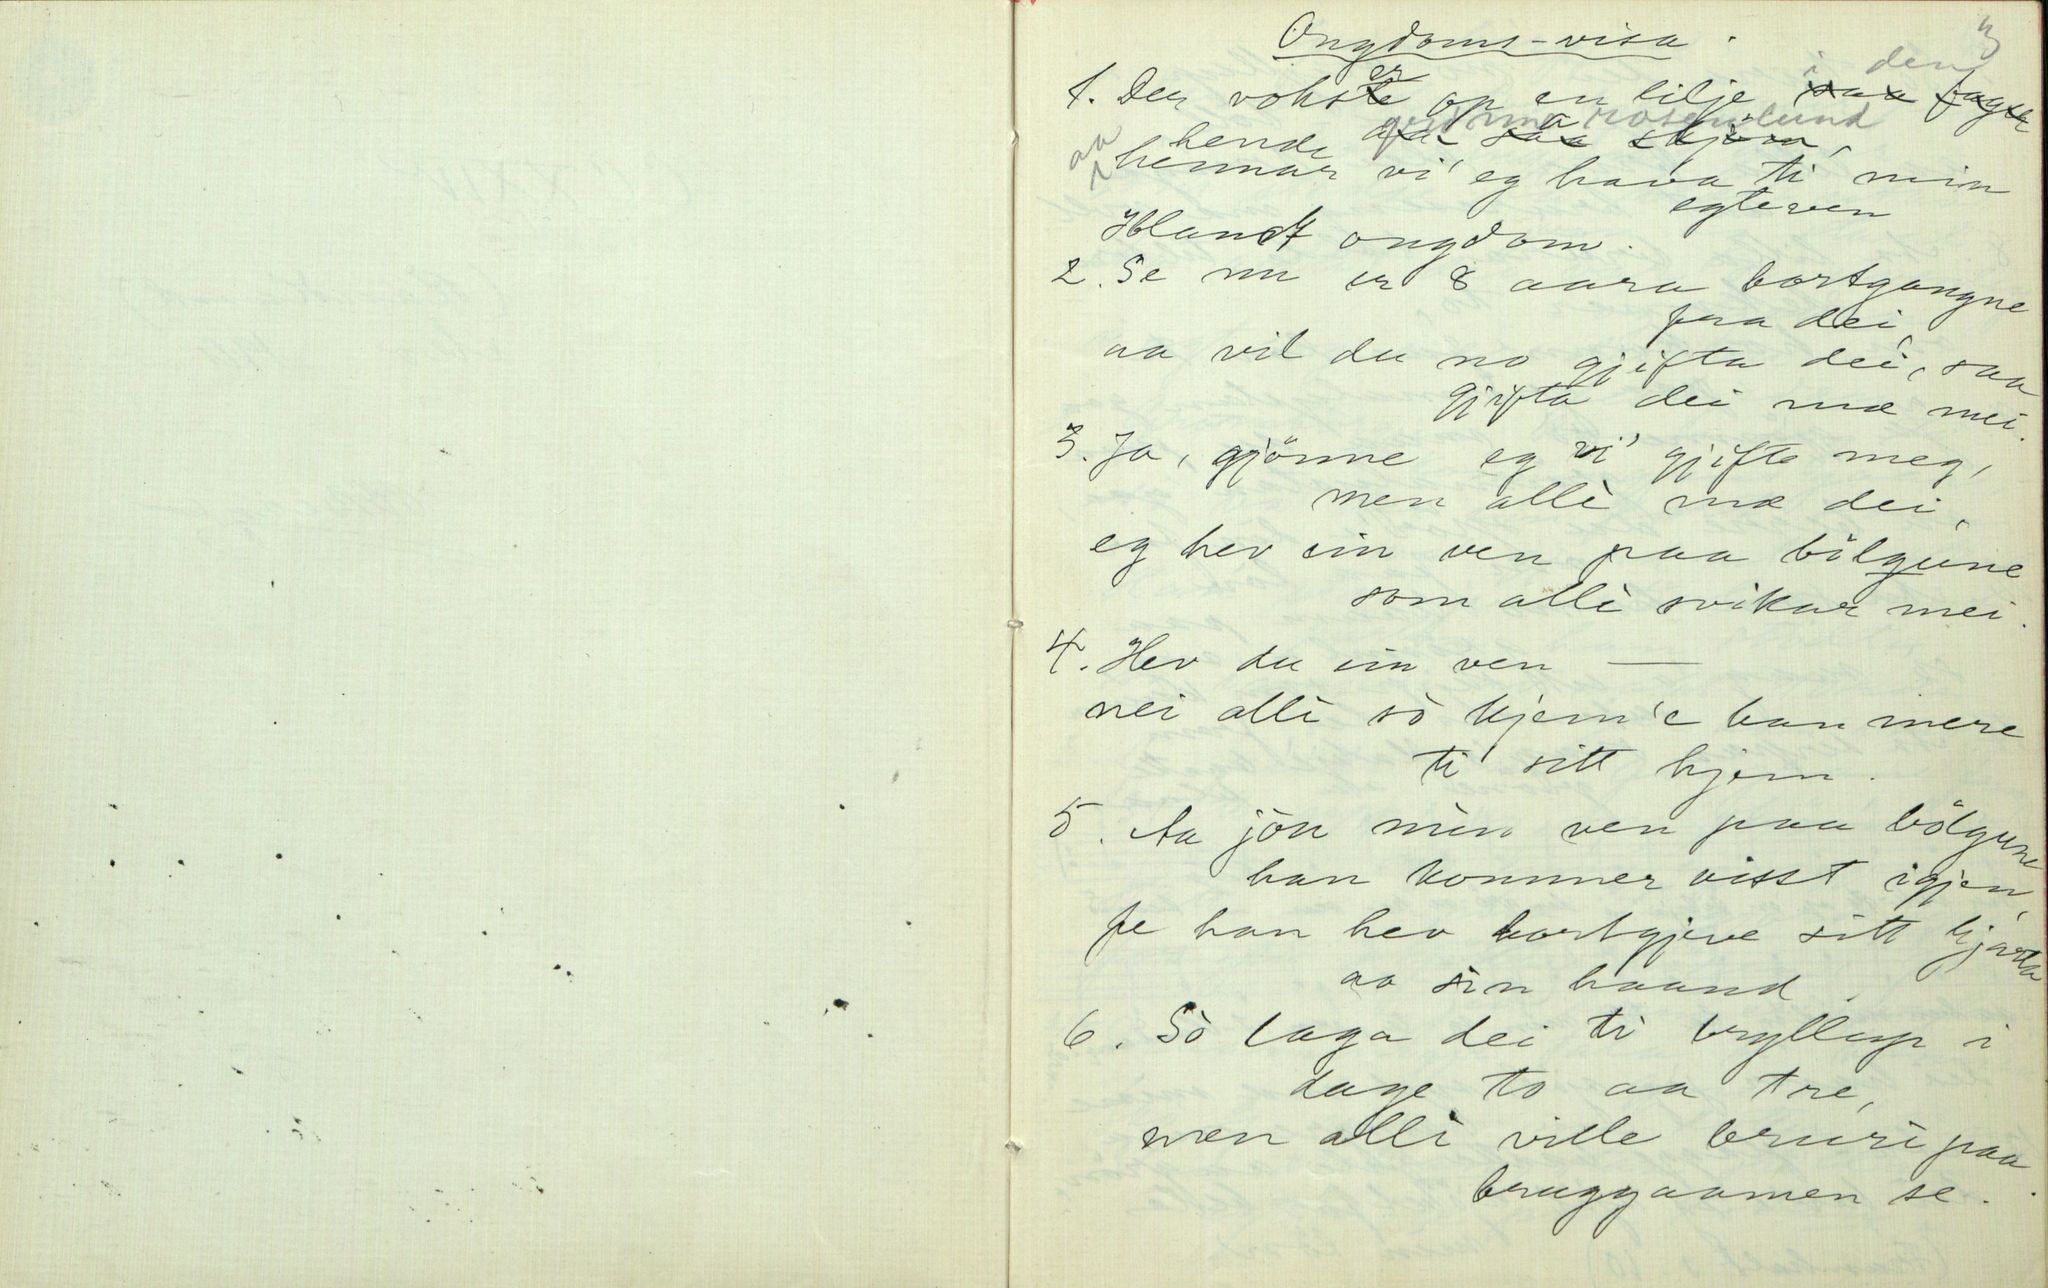 3
Ongdoms-visa.
i den
1. Der vokste er op en lilje saa fagre
grønna rosenlund
aa hende saa skjøn,
hennar vi' eg hava ti min
egteven
Iblandt ongdom.
2. Se nu er 8 aara bortgangne
fraa dei,
aa vil du no gjifta dei, saa
gjifta dei mæ mei.
3. Ja, gjönne eg vi' gjifte meg,
men allè mæ dei,
eg hev ein ven paa bölgune
som allè svikar mei.
4. Hev du ein ven —
nei allè sò kjem'e han mere
ti sitt hjem.
5. Aa jön mìn ven paa bölgune
han kommer visst igjen,
fe han hev bortgjeve sitt hjarta
aa sin haand.
6. Sò laga dei ti bryllup i
dage to aa tre,
men allì ville bruri paa
bruggaamen se.